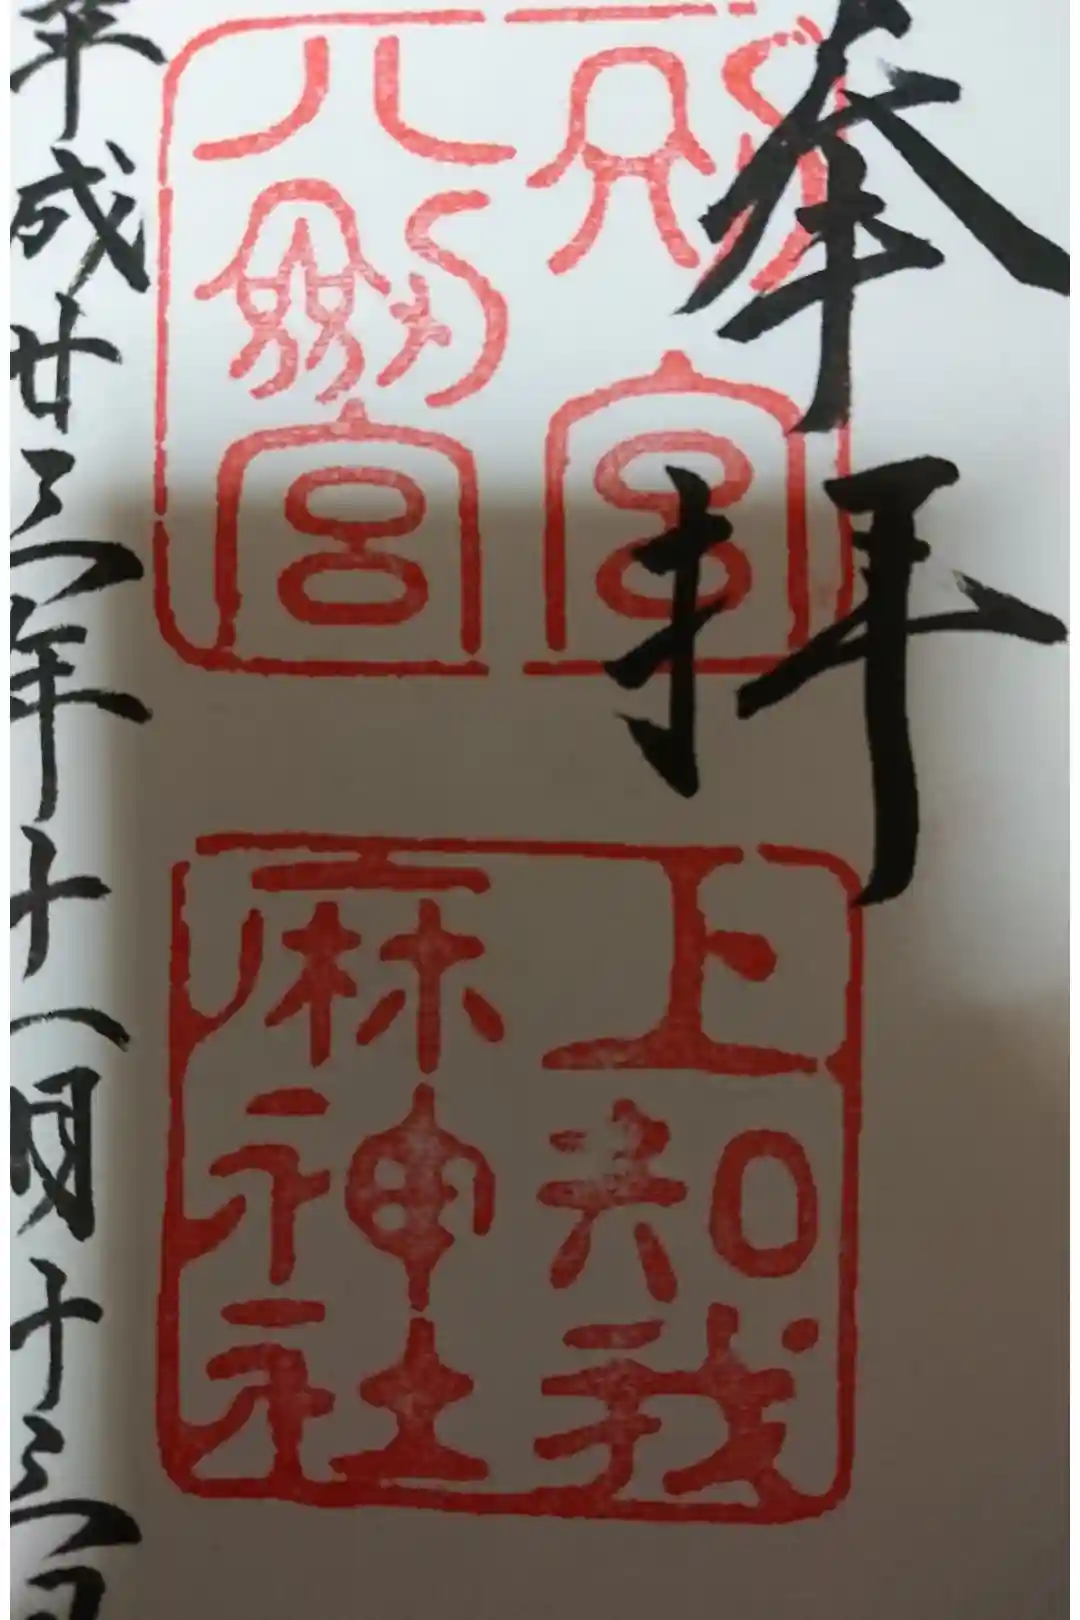 奉拝
別宮
八劔宮
上知我
麻神社
平成廿三年十一月十三日